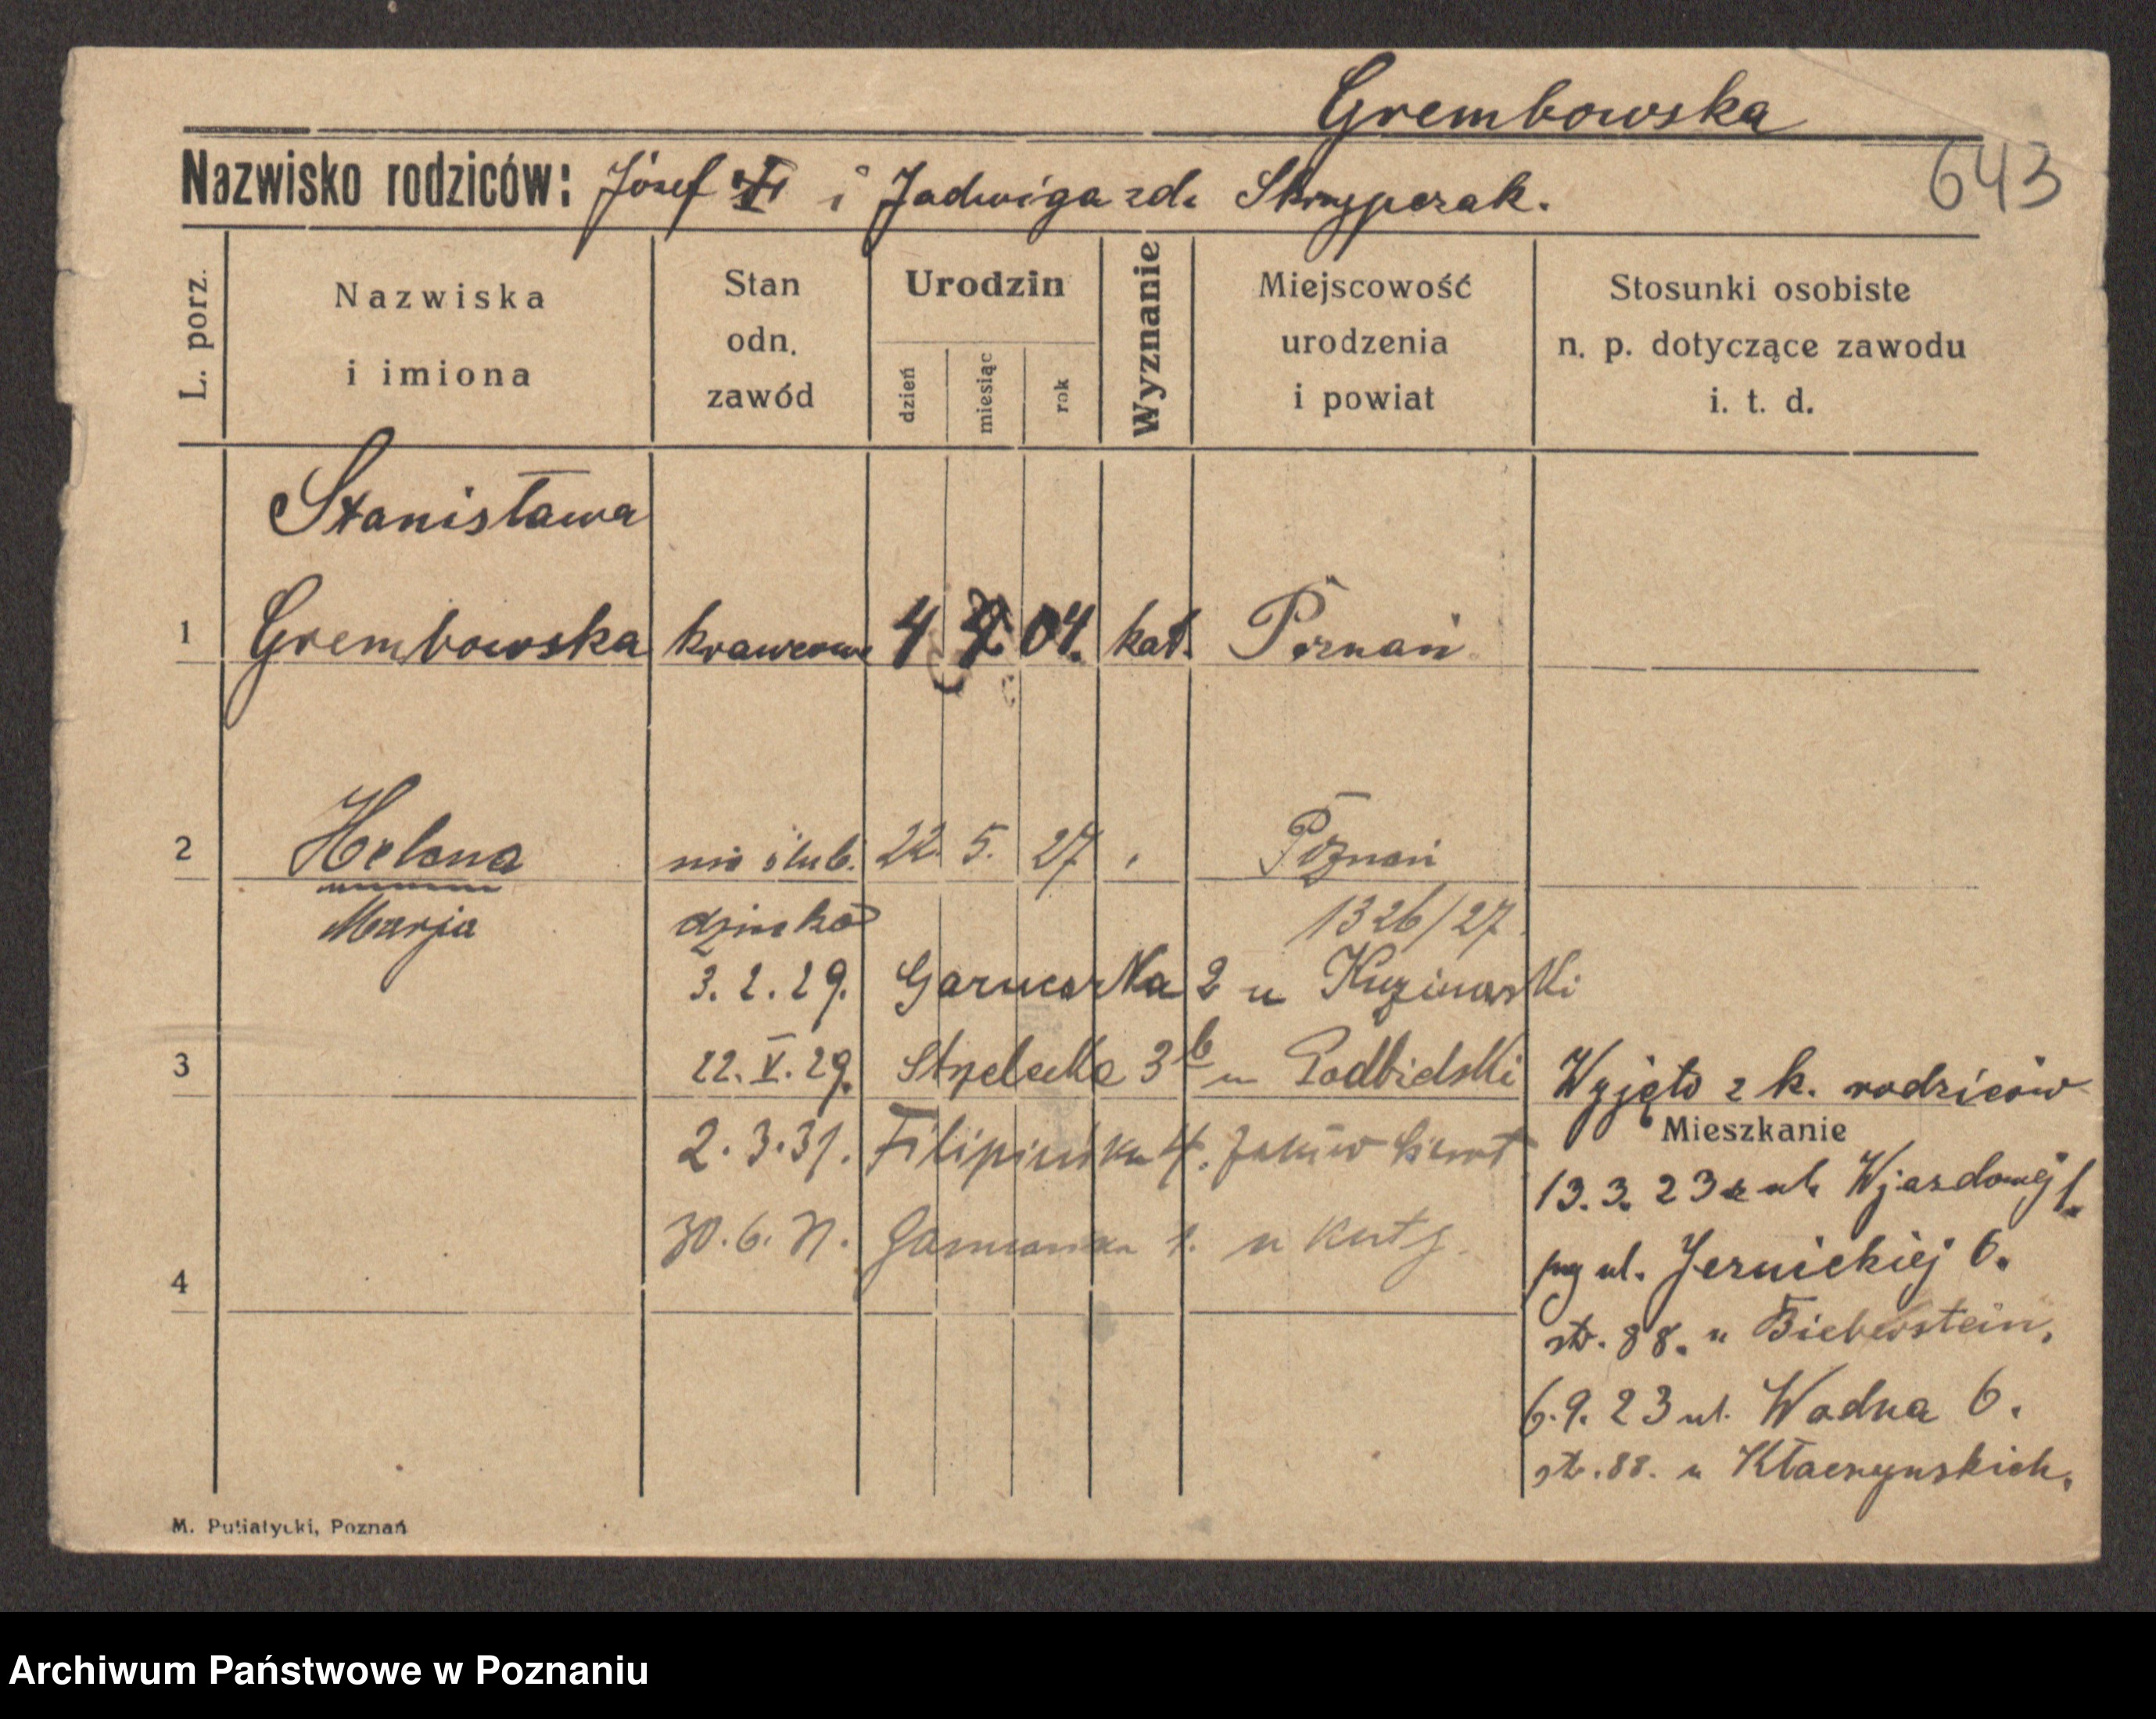 Grembowska
643
Nazwisko rodziców: Józef i Jadwiga zd. Skrzypczak.
L. porz.
Nazwiska
i imiona
Stan
odn.
zawód
Urodzin
dzień
miesiąc
rok
Wyznanie
Miejscowość
urodzenia
i powiat
Stosunki osobiste
n. p. dotyczące zawodu
i. t. d.
Stanisława
1 Grembowska krawcowa 4 04. kat. Poznań
2 Helena nie ślub. 22. 5. 27 Poznań
Marja dziecko 1326/27.
3. 2. 29. Garncarska 2 u
3 22. V. 29. Strzelecka 3b u Podbielski
Wyjęto z k. rodziców
Mieszkanie
2. 3. 31. Filipińska 4.
30. 6. 31. 1. u
4
13. 3. 23 z ul. Wjazdowej 1.
ul. Jezuickiej 6.
str. 88. u Bieberstein.
6. 9. 23 ul. Wodna 6.
str. 88. u Kłaczynskich.
M. Putiatycki, Poznań
Archiwum Państwowe w Poznaniu